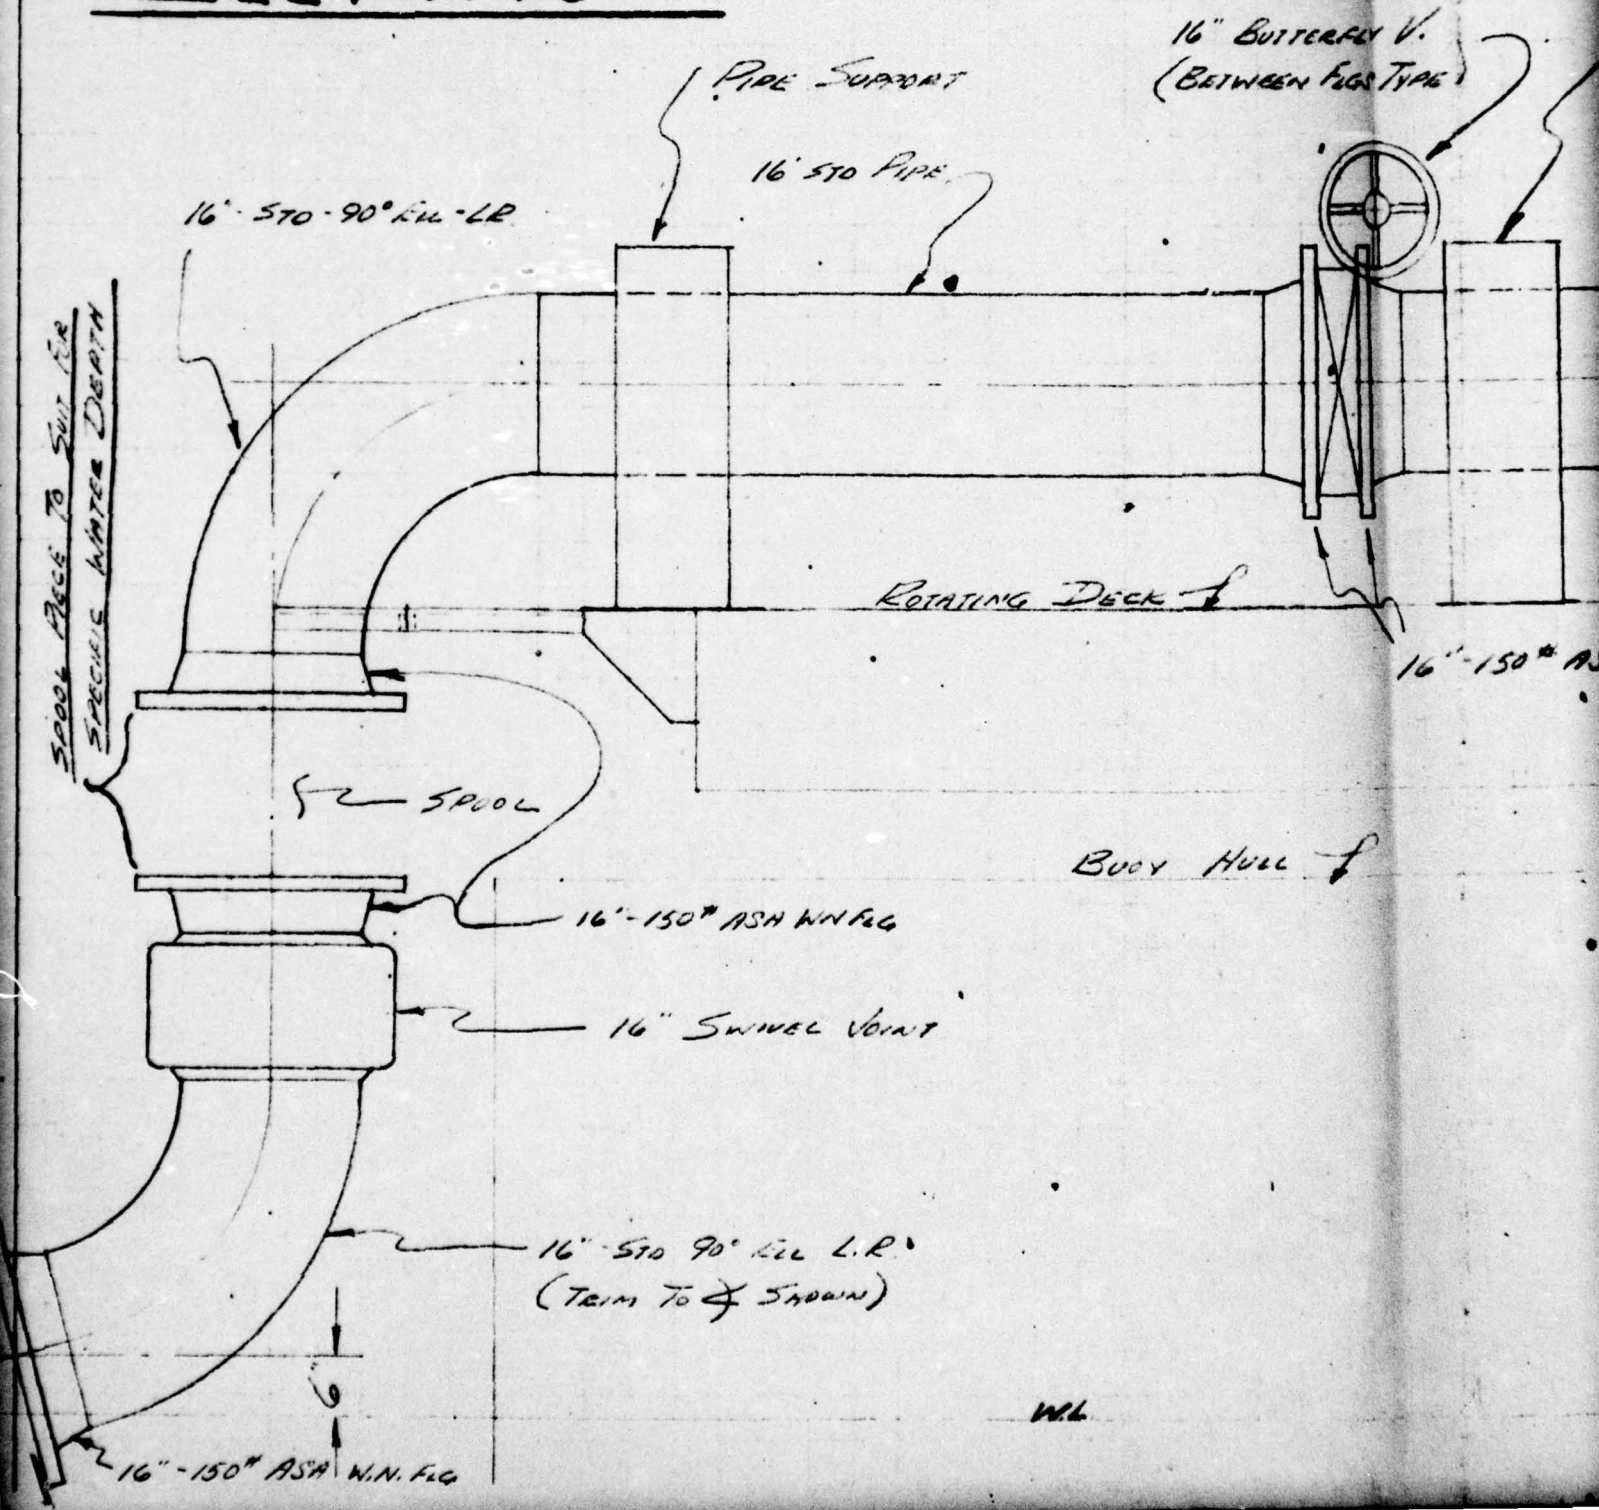 16" BUTTERFLY V.
(BETWEEN FLGS TYPE)
PIPE SUPPORT
16" STD PIPE
16"-STD-90° ELL-LR
SPOOL PIECE TO SUIT FOR
SPECIFIC WATER DEPTH
ROTATING DECK
16"-150# AS
SPOOL
BUOY HULL
16"-150# ASA WN FLG
16" SWIVEL JOINT
16" STD 90° ELL L.R.
(TRIM TO ∡ SHOWN)
6"
W.L.
16"-150# ASA W.N. FLG